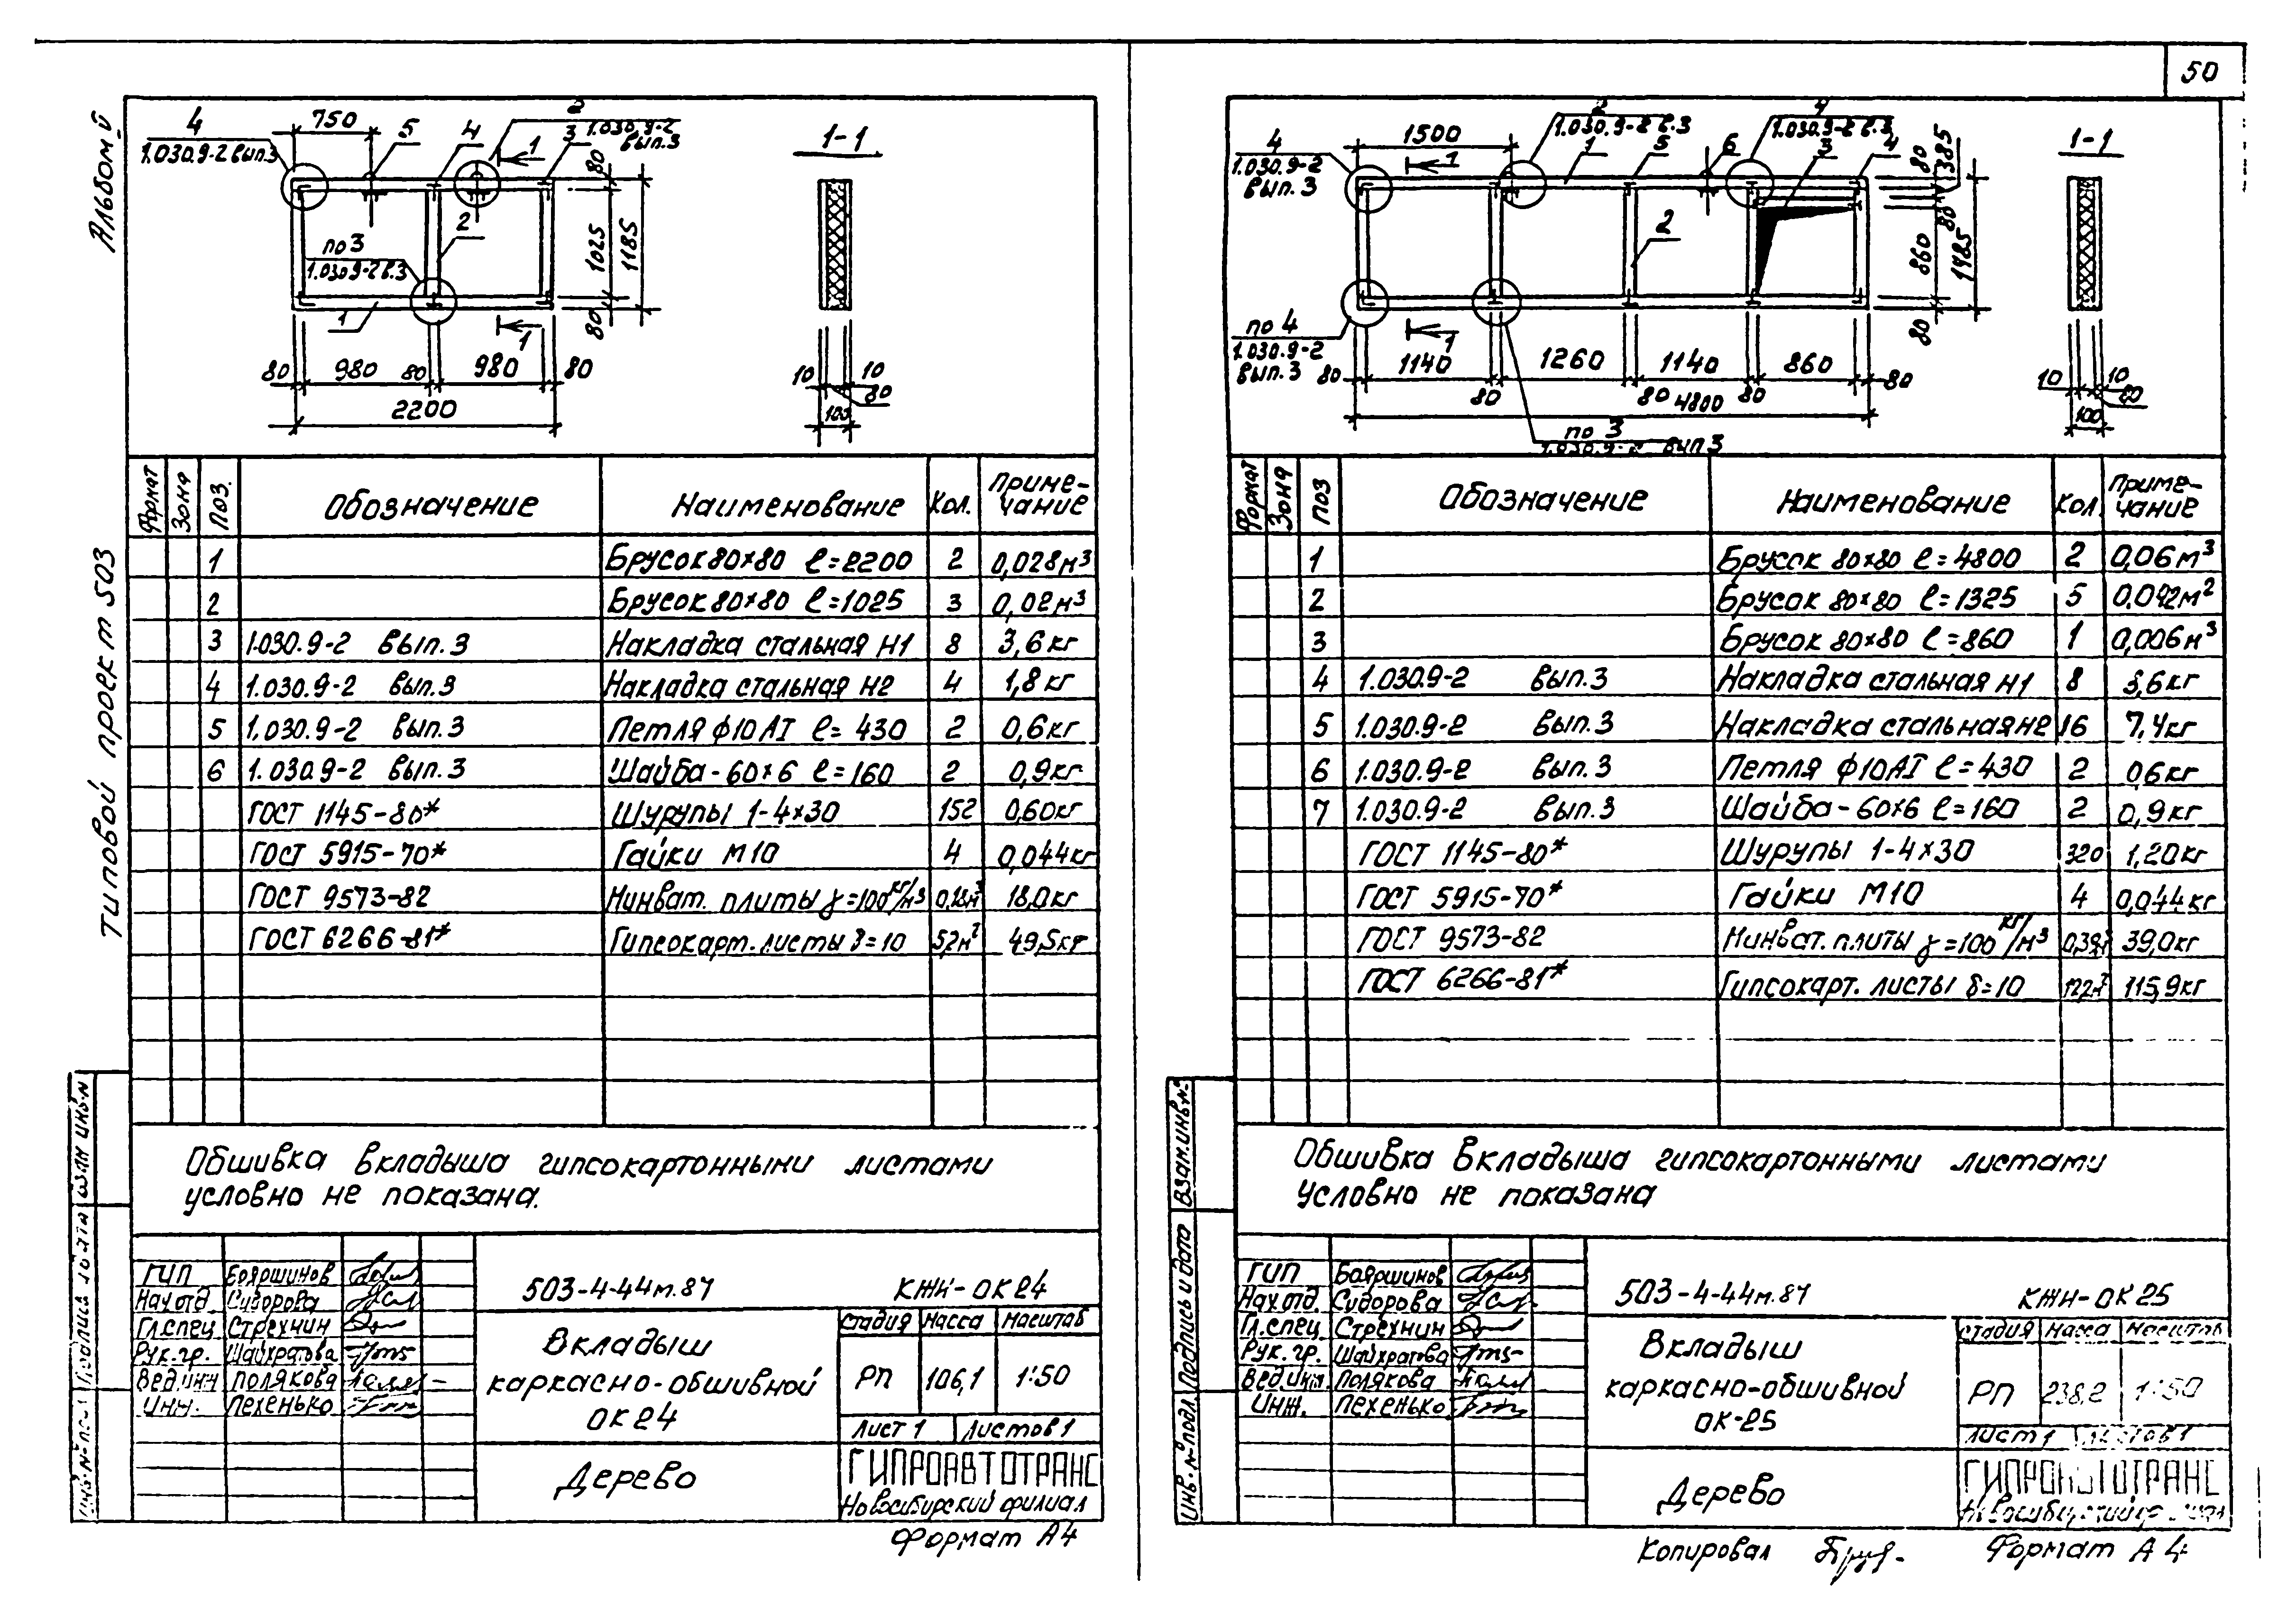 50
Альбом V
Типовой проект 503
4
1.030.9-2 вып.3
750
5
4
2
1.030.9-2
вып.3
1
3
80
1025
1185
80
2
по 3
1.030.9-2 в.3
1
1
80 980 80 980 80
2200
1-1
10 10
80
100
Формат Зона Поз. Обозначение Наименование Кол. Приме-
чание
1 Брусок 80×80 ℓ=2200 2 0,028м³
2 Брусок 80×80 ℓ=1025 3 0,02м³
3 1.030.9-2 вып.3 Накладка стальная Н1 8 3,6кг
4 1.030.9-2 вып.3 Накладка стальная Н2 4 1,8кг
5 1.030.9-2 вып.3 Петля ф10АI ℓ=430 2 0,6кг
6 1.030.9-2 вып.3 Шайба-60×6 ℓ=160 2 0,9кг
ГОСТ 1145-80* Шурупы 1-4×30 152 0,60кг
ГОСТ 5915-70* Гайки М10 4 0,044кг
ГОСТ 9573-82 Минват. плиты γ=100кг/м³ 0,18м³ 18,0кг
ГОСТ 6266-81* Гипсокарт. листы δ=10 5,2м² 49,5кг
Обшивка вкладыша гипсокартонными листами
условно не показана.
ГИП Бояршинов
Нач отд. Сидорова
Гл.спец Стрехнин
Рук.гр. Шайхратова
Вед инж Полякова
Инж. Пехенько
503-4-44м.87 КЖИ-ОК24
Вкладыш
каркасно-обшивной
ОК24
Стадия Масса Масштаб
РП 106,1 1:50
Лист 1 Листов 1
Дерево
ГИПРОАВТОТРАНС
Новосибирский филиал
Формат А4
4
1.030.9-2
вып.3
1500
1
2
1.030.9-2 в.3
1
5
6
4
1.030.9-2 в.3
3
4
80
385
80
860
1485
80
2
по 4
1.030.9-2
вып.3
1
80 1140 80 1260 80 1140 80 860 80
4800
по 3
1.030.9-2 вып.3
1-1
10 10
80
100
Формат Зона Поз Обозначение Наименование Кол. Приме-
чание
1 Брусок 80×80 ℓ=4800 2 0,06м³
2 Брусок 80×80 ℓ=1325 5 0,042м²
3 Брусок 80×80 ℓ=860 1 0,006м³
4 1.030.9-2 вып.3 Накладка стальная Н1 8 3,6кг
5 1.030.9-2 вып.3 Накладка стальная Н2 16 7,4кг
6 1.030.9-2 вып.3 Петля ф10АI ℓ=430 2 0,6кг
7 1.030.9-2 вып.3 Шайба-60×6 ℓ=160 2 0,9кг
ГОСТ 1145-80* Шурупы 1-4×30 320 1,20кг
ГОСТ 5915-70* Гайки М10 4 0,044кг
ГОСТ 9573-82 Минват. плиты γ=100кг/м³ 0,39м³ 39,0кг
ГОСТ 6266-81* Гипсокарт. листы δ=10 12,2м² 115,9кг
Обшивка вкладыша гипсокартонными листами
условно не показана
Взам.инв.№
Подпись и дата
Инв.№подл
ГИП Бояршинов
Нач.отд Сидорова
Гл.спец Стрехнин
Рук.гр. Шайхратова
Вед инж. Полякова
Инж. Пехенько
503-4-44м.87 КЖИ-ОК25
Вкладыш
каркасно-обшивной
ОК-25
Стадия Масса Масштаб
РП 238,2 1:50
Лист 1 Листов 1
Дерево
ГИПРОАВТОТРАНС
Новосибирский филиал
Копировал
Формат А4